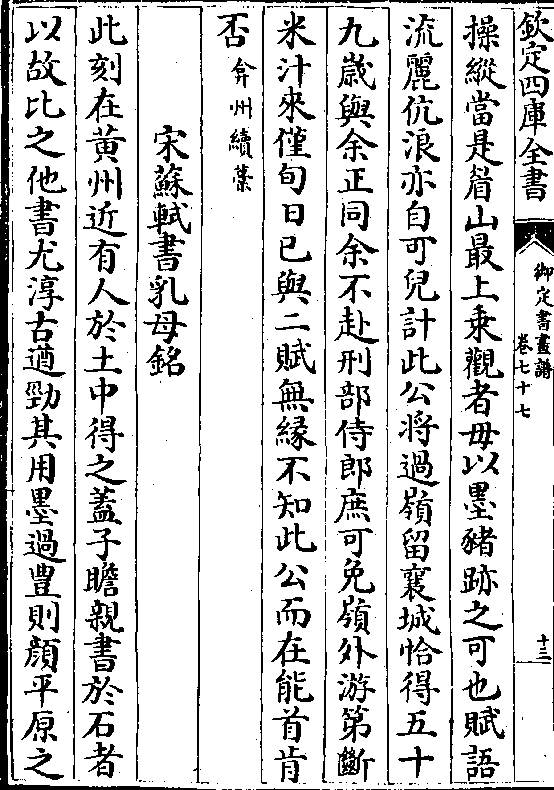 欽定四庫全書
御定書畫譜
卷七十七
十三
操縱當是眉山最上乗觀者毋以墨豬跡之可也賦語
流麗伉浪亦自可兒計此公將過嶺留襄城恰得五十
九歲與余正同余不赴刑部侍郎庶可免嶺外游第斷
米汁來僅旬日已與二賦無緣不知此公而在能首肯
否弇州續藁
宋蘇軾書乳母銘
此刻在黄州近有人於土中得之蓋子瞻親書於石者
以故比之他書尤淳古遒勁其用墨過豐則顔平原之